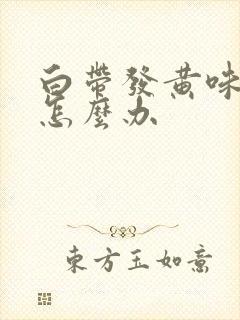 白帶發黄味
怎麼办
東方玉如意